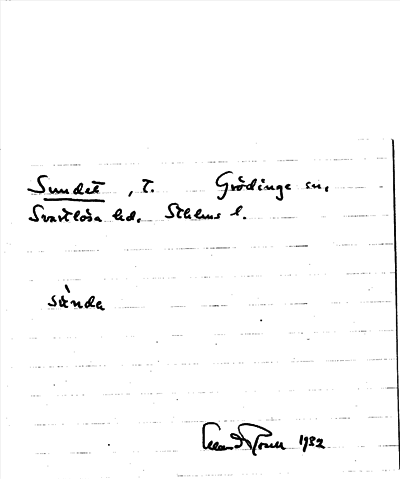 Sundet, t. Grödinge sn,
Svartlösa hd, Sthlms l.
sùnda
1932